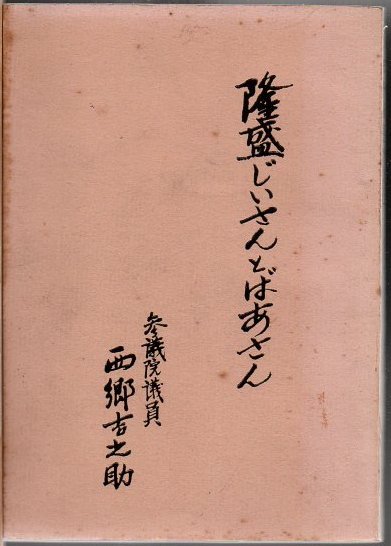 隆盛じいさんとばあさん
参議院議員
西郷吉之助